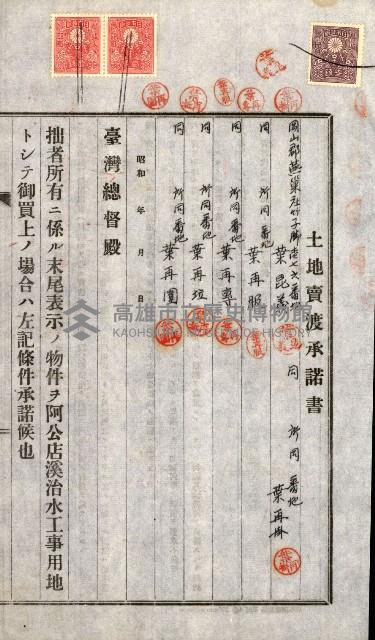 土地賣渡承諾書
岡山郡燕巢庄竹子脚七六番地
葉昆
同 所同番地
葉再掛
同 所同番地
葉再服
同 所同番地
葉再專
同 所同番地
葉再垃
同 所同番地
葉再圓
昭和 年 月 日
臺灣總督殿
拙者所有ニ係ル末尾表示ノ物件ヲ阿公店溪治水工事用地
トシテ御買上ノ場合ハ左記條件承諾候也
高雄市立歷史博物館
KAOHSIUNG MUSEUM OF HISTORY